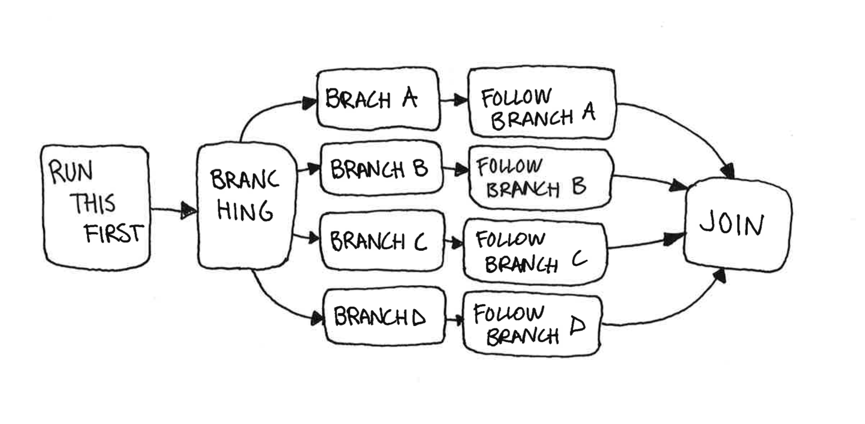 RUN
THIS
FIRST
BRANC
HING
BRACH A
FOLLOW
BRANCH A
BRANCH B
FOLLOW
BRANCH B
BRANCH C
FOLLOW
BRANCH C
BRANCH D
FOLLOW
BRANCH D
JOIN